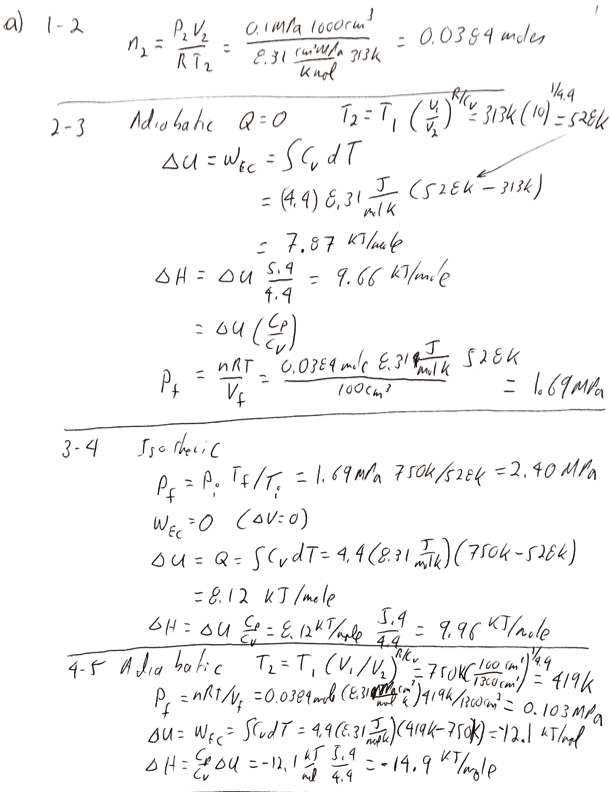 1
a) 1-2 n₂ = P₂V₂/RT₂ = 0.1MPa 1000cm³ / 8.31 cm³MPa/Kmol 313K = 0.0384 moles
2-3 Adiabatic Q=0 T₂ = T₁ (V₁/V₂)^R/Cv = 313K (10)^1/4.4 = 528K
ΔU = W_EC = ∫CvdT
= (4.4) 8.31 J/molK (528K - 313K)
= 7.87 KJ/mole
ΔH = ΔU 5.4/4.4 = 9.66 KJ/mole
= ΔU (Cp/Cv)
P_f = nRT/V_f = 0.0384 mole 8.31 J/molK 528K / 100cm³ = 1.69 MPa
3-4 Isochoric
P_f = P_i T_f/T_i = 1.69MPa 750K/528K = 2.40 MPa
W_EC = 0 (ΔV=0)
ΔU = Q = ∫CvdT = 4.4 (8.31 J/molK) (750K - 528K)
= 8.12 KJ/mole
ΔH = ΔU Cp/Cv = 8.12 KJ/mole 5.4/4.4 = 9.96 KJ/mole
4-5 Adiabatic T₂ = T₁ (V₁/V₂)^R/Cv = 750K (100cm³/1300cm³)^1/4.4 = 419K
P_f = nRT/V_f = 0.0384mol (8.31 MPa cm³/mol K) 419K/1300cm³ = 0.103 MPa
ΔU = W_EC = ∫CvdT = 4.4 (8.31 J/molK) (419K - 750K) = -12.1 KJ/mol
ΔH = Cp/Cv ΔU = -12.1 KJ/mol 5.4/4.4 = -14.9 KJ/mole